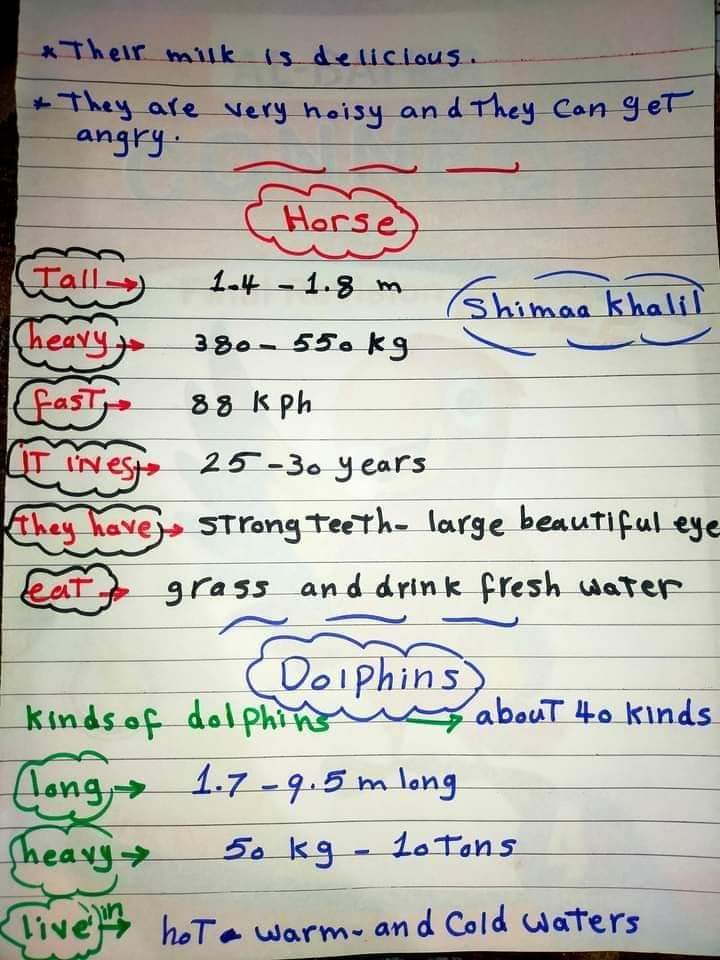 * Their milk is delicious.
* They are very noisy and They can get
angry.
Horse
Tall → 1.4 - 1.8 m
Shimaa khalil
heavy → 380 - 550 kg
fast → 88 kph
IT lives → 25 - 30 years
They have → strong teeth - large beautiful eye
eat → grass and drink fresh water
Dolphins
kinds of dolphins → about 40 kinds
long → 1.7 - 9.5 m long
heavy → 50 kg - 10 Tons
live in → hot - warm - and Cold waters